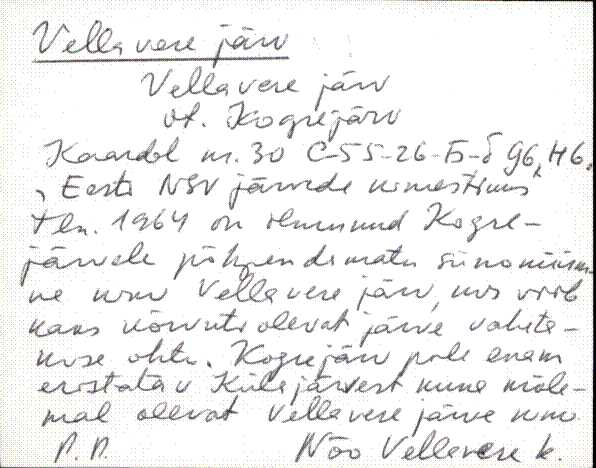 Vellavere järv
Vellavere järv
vt. Kogrejärv
Kaardil nr. 30 C-55-26-Б-б 96, H6.
, Eesti NSV järvede nimestikus
Tln. 1964 on ilmunud Kogre-
järvele põhjendamatu sünonüüm-
ne nimi Vellavere järv, mis viib
kaks kõrvuti olevat järve vaheta-
muse ohtu. Kogrejärv pole enam
eristatav Külajärvest kuna mõle-
mal olevat Vellavere järve nimi
P. P. Nõo Vellavere k.